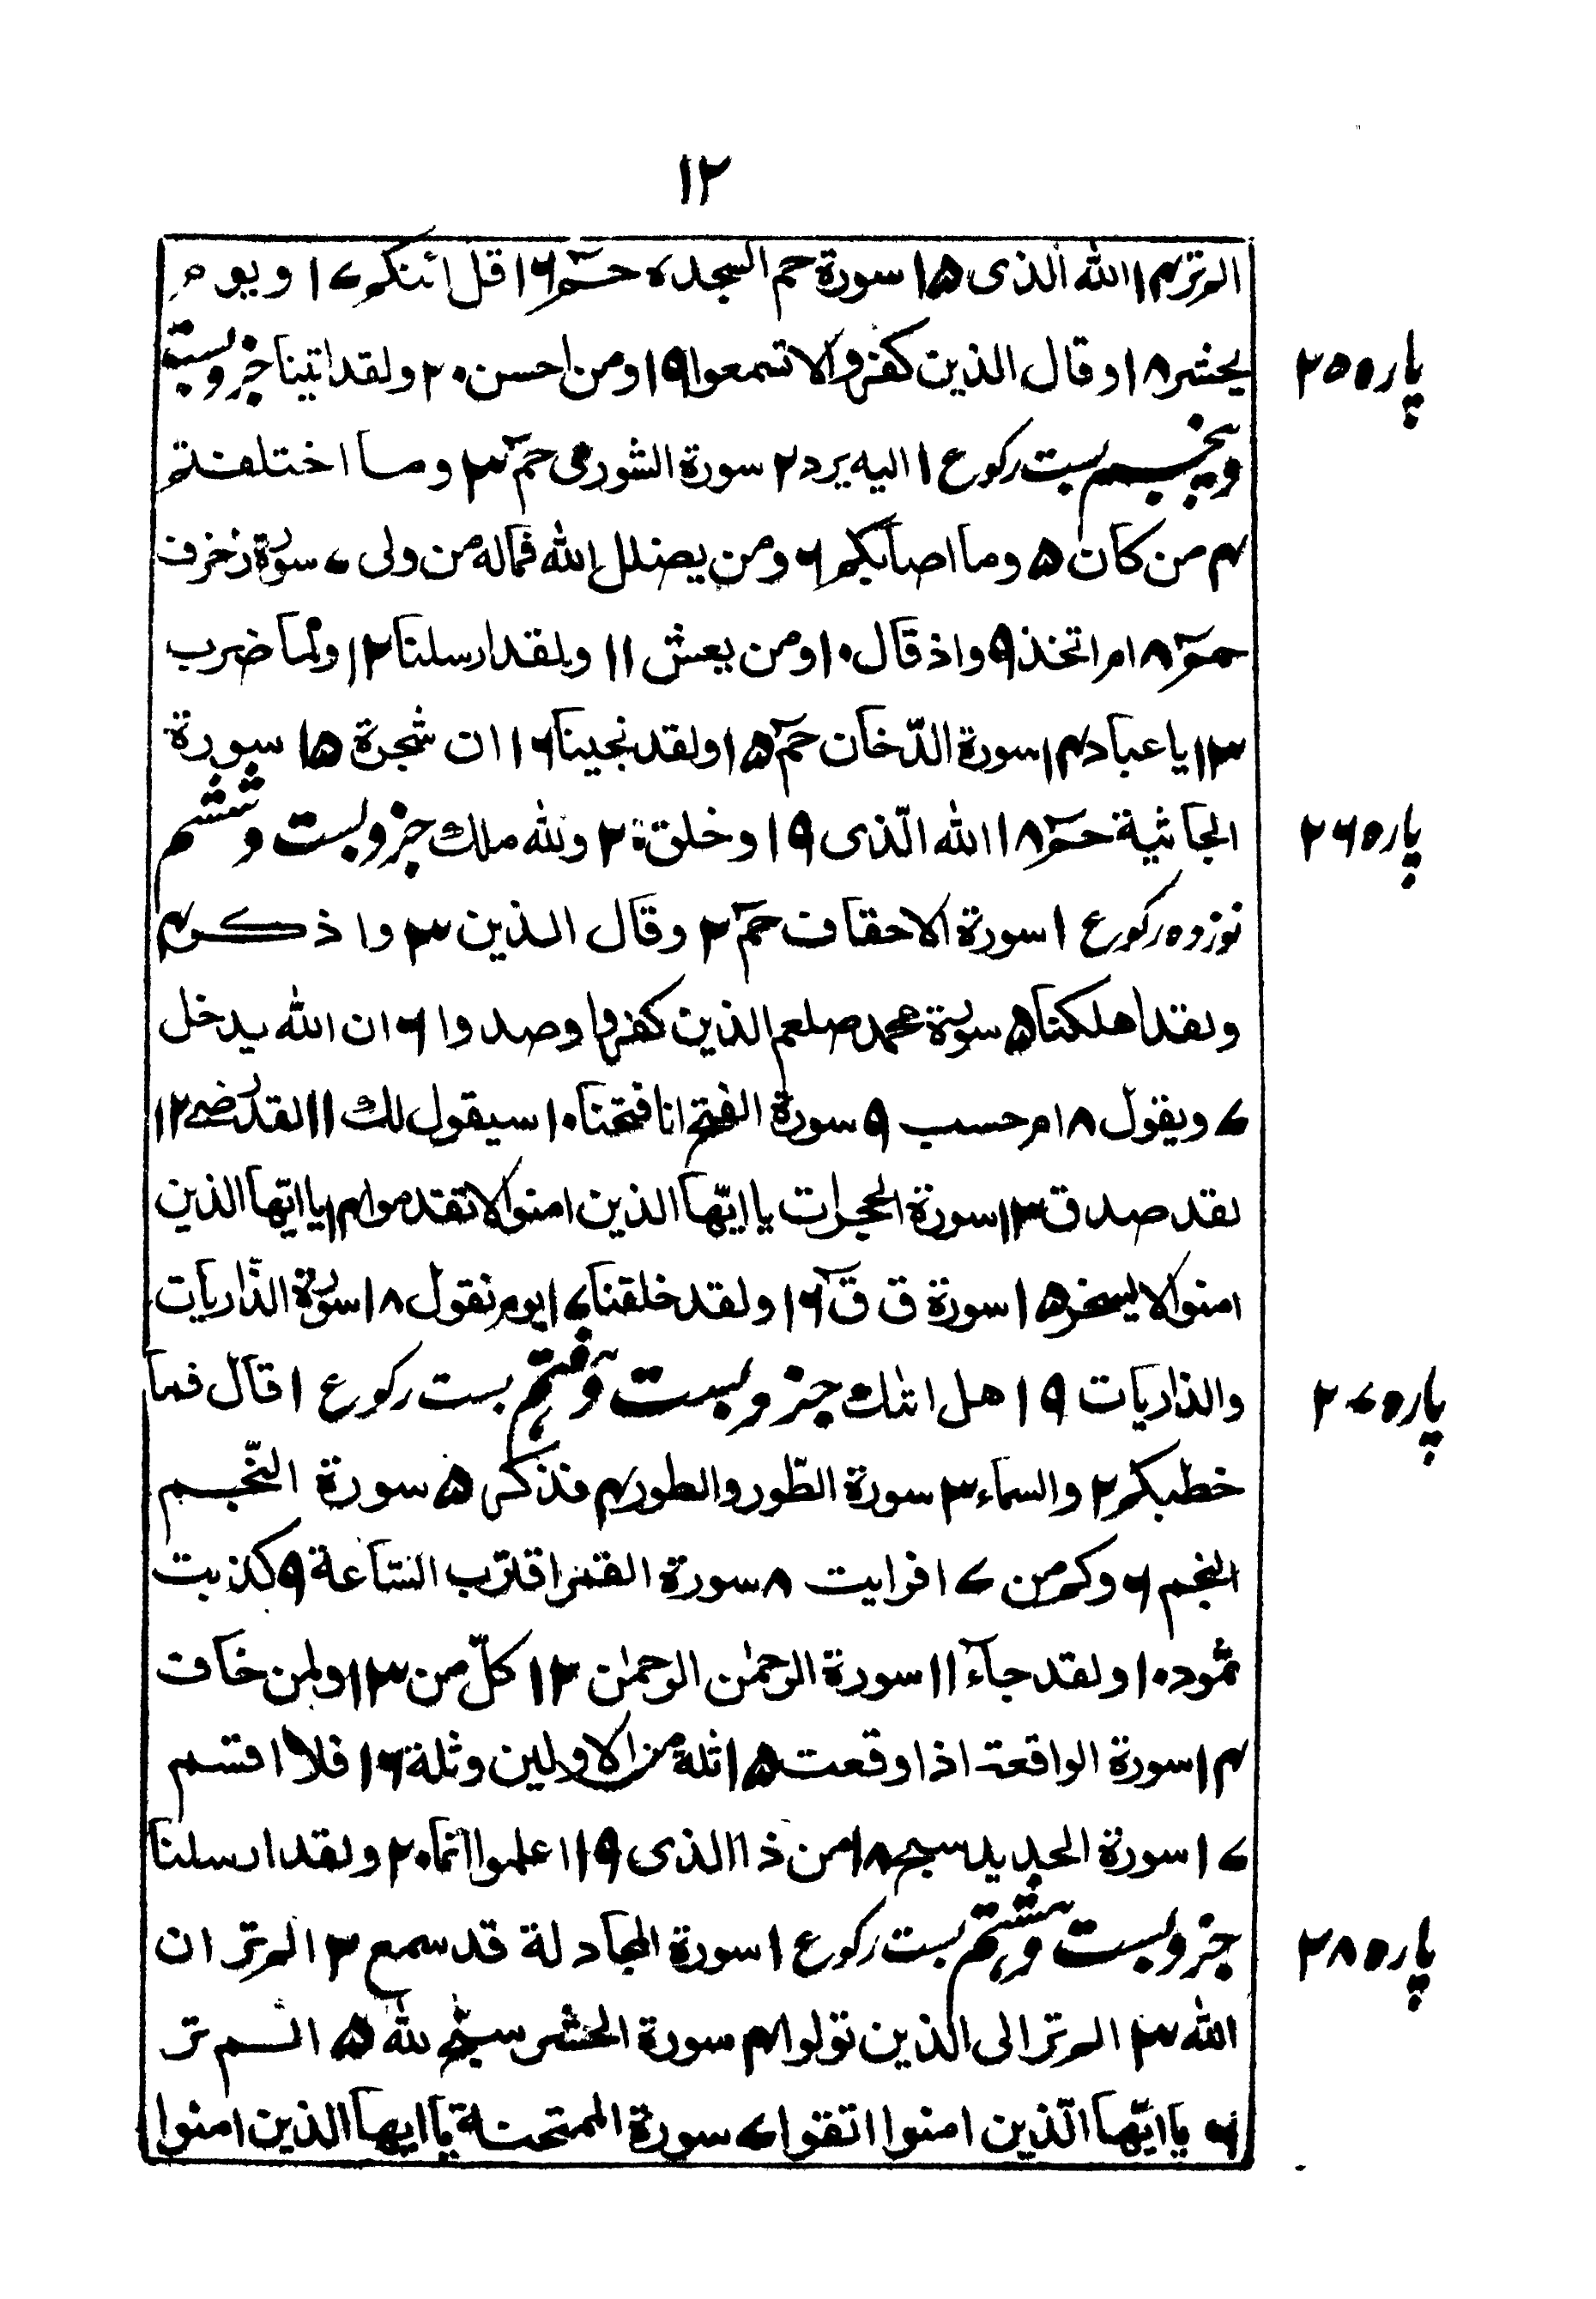 ۱۲
الم تر ۱۴ الله الذی ۱۵ سورة حم السجده حٰمٓ ۱۶ قل ائنکم ۱۷ ویوم
پاره ۲۵
یحشر ۱۸ وقال الذین کفروا لا تسمعوا ۱۹ ومن احسن ۲۰ ولقد اتینا جزو بست
وپنجم بست رکوع ۱ الیه یرد ۲ سورة الشوری حمٓ ۳ وما اختلفتم
۴ من کان ۵ وما اصابکم ۶ ومن یضلل الله فماله من ولی ۷ سورة زخرف
حٰمٓ ۸ ام اتخذ ۹ واذ قال ۱۰ ومن یعش ۱۱ ولقد ارسلنا ۱۲ ولما ضرب
۱۳ یا عباد ۱۴ سورة الدّخان حمٓ ۱۵ ولقد نجینا ۱۶ ان شجرة ۱۵ سورة
پاره ۲۶
الجاثیة حٰمٓ ۱۸ الله الّذی ۱۹ وخلق ة ۲ ولله ملك جزو بست وششم
نوزده رکوع ۱ سورة الاحقاف حمٓ ۲ وقال الذین ۳ واذکر ۴
ولقد اهلکنا ۵ سورة محمد صلعم الذین کفروا وصدوا ۶ ان الله یدخل
۷ ویقول ۸ ام حسب ۹ سورة الفتح انا فتحنا ۱۰ سیقول لك ۱۱ لقد رضی ۱۲
لقد صدق ۱۳ سورة الحجرات یا ایّها الذین امنوا لا تقدموا ۱۴ یا ایّها الذین
امنوا لا یسخر ۱۵ سورة ق قٓ ۱۶ ولقد خلقنا ۱۷ یوم نقول ۱۸ سورة الذّاریات
پاره ۲۷
والذاریات ۱۹ هل اتٰك جزو بست وهفتم بست رکوع ۱ قال فما
خطبکم ۲ والسماء ۳ سورة الطّور والطور ۴ فذکر ۵ سورة النّجم
النجم ۶ وکم من ۷ افرایت ۸ سورة القمر اقترب السّاعة ۹ کذبت
ثمود ۱۰ ولقد جآء ۱۱ سورة الرحمٰن الرحمٰن ۱۲ کلّ من ۱۳ ولمن خاف
۱۴ سورة الواقعة اذا وقعت ۱۵ ثلة من الاولین وثلة ۱۶ فلا اقسم
۱۷ سورة الحدید سبح ۱۸ من ذا الذی ۱۹ اعلموا انما ۲۰ ولقد ارسلنا
پاره ۲۸
جزو بست وهشتم بست رکوع ۱ سورة المجادلة قد سمع ۲ الم تر ان
الله ۳ الم تر الی الذین تولوا ۴ سورة الحشر سبح لله ۵ الم تر
۶ یا ایّها الّذین امنوا اتقوا ۷ سورة الممتحنة یا ایها الذین امنوا